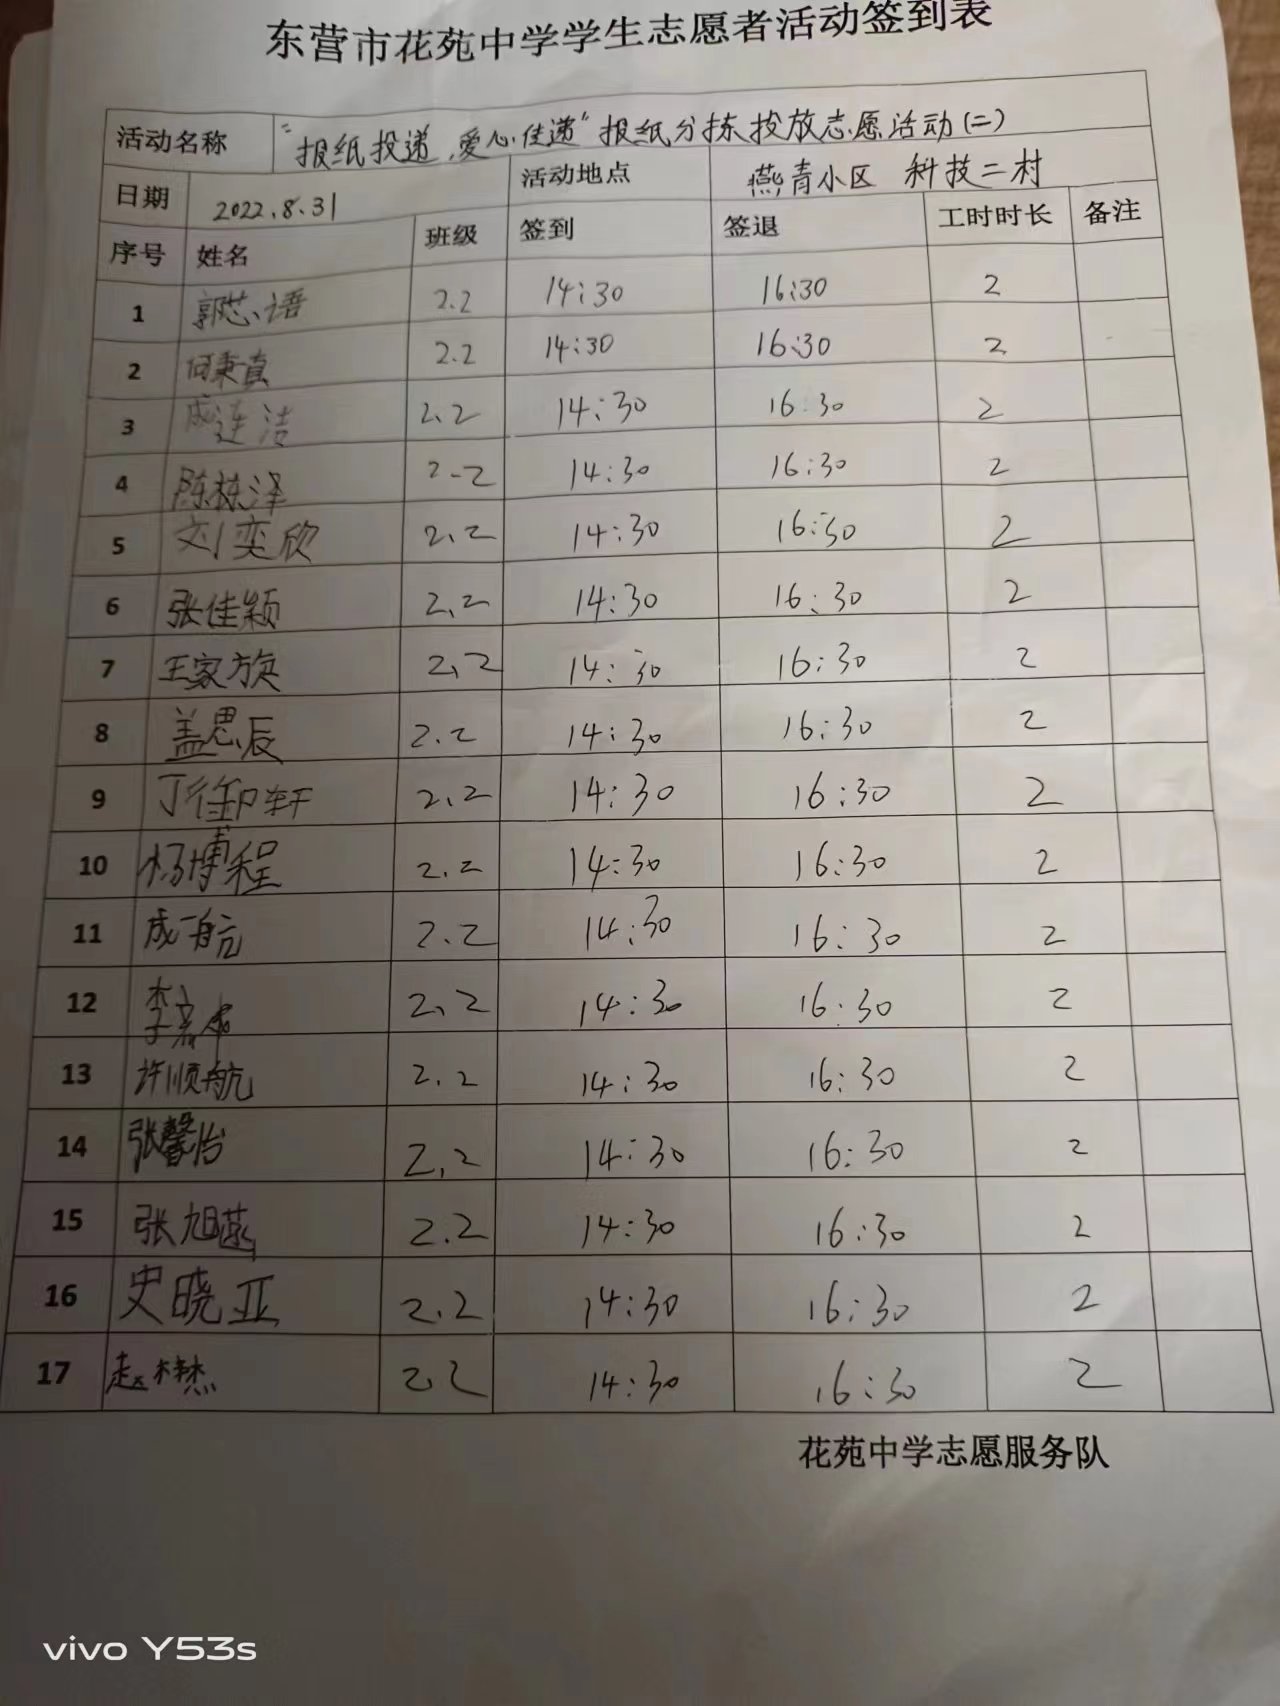 东营市花苑中学学生志愿者活动签到表
活动名称 "报纸投递,爱心佳递"报纸分拣投放志愿活动(二)
日期 2022.8.31 活动地点 燕青小区 科技二村
序号 姓名 班级 签到 签退 工时时长 备注
1 郭芯语 2.2 14:30 16:30 2
2 何秉真 2.2 14:30 16:30 2
3 成连洁 2.2 14:30 16:30 2
4 陈栋泽 2-2 14:30 16:30 2
5 刘奕欣 2.2 14:30 16:30 2
6 张佳颖 2.2 14:30 16:30 2
7 王家旗 2.2 14:30 16:30 2
8 盖思辰 2.2 14:30 16:30 2
9 丁御轩 2.2 14:30 16:30 2
10 杨博程 2.2 14:30 16:30 2
11 成一航 2.2 14:30 16:30 2
12 李 2.2 14:30 16:30 2
13 许顺航 2.2 14:30 16:30 2
14 张馨怡 2.2 14:30 16:30 2
15 张旭 2.2 14:30 16:30 2
16 史晓亚 2.2 14:30 16:30 2
17 赵梓杰 2.2 14:30 16:30 2
花苑中学志愿服务队
vivo Y53s